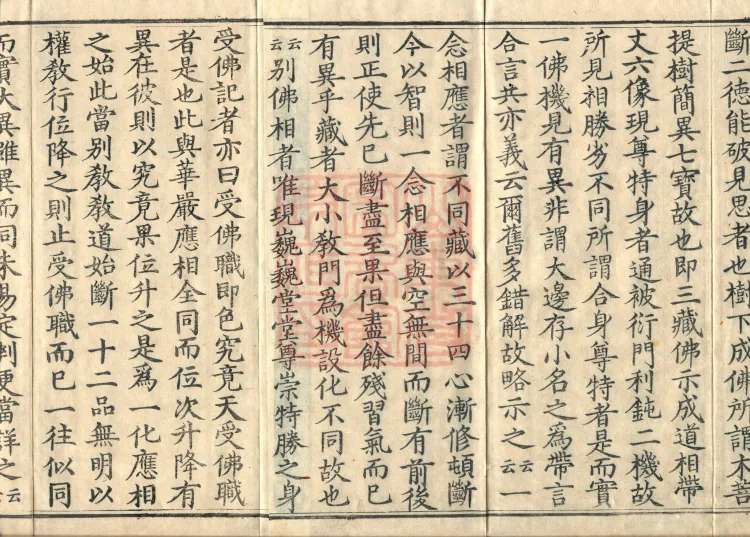 斷二德能破見思者也樹下成佛所謂木菩
提樹簡異七寶故也即三藏佛示成道相帶
丈六像現尊特身者通被衍門利鈍二機故
所見相勝劣不同所謂合身尊特者是而實
一佛機見有異非謂大邊存小名之爲帶言
合言共亦義云爾舊多錯解故略示之云云一
念相應者謂不同藏以三十四心漸修頓斷
今以智則一念相應與空無間而斷有前後
則正使先已斷盡至果但盡餘殘習氣而已
有異乎藏者大小教門爲機設化不同故也
云云別佛相者唯現巍巍堂堂尊崇特勝之身
受佛記者亦曰受佛職即色究竟天受佛職
者是也此與華嚴應相全同而位次升降有
異在彼則以究竟果位升之是爲一化應相
之始此當別教教道始斷一十二品無明以
權教行位降之則止受佛職而已一往似同
而實大異雖異而同未易定判更當詳之云云